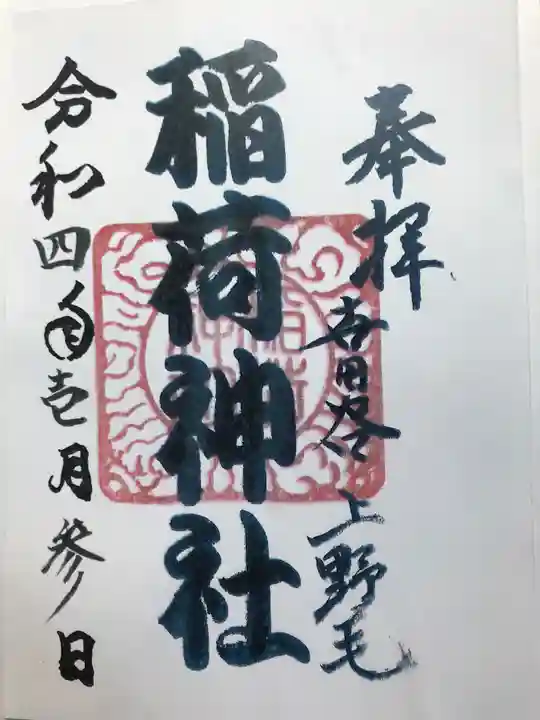 奉拝
世田谷 上野毛
稲荷神社
令和四年壱月参日